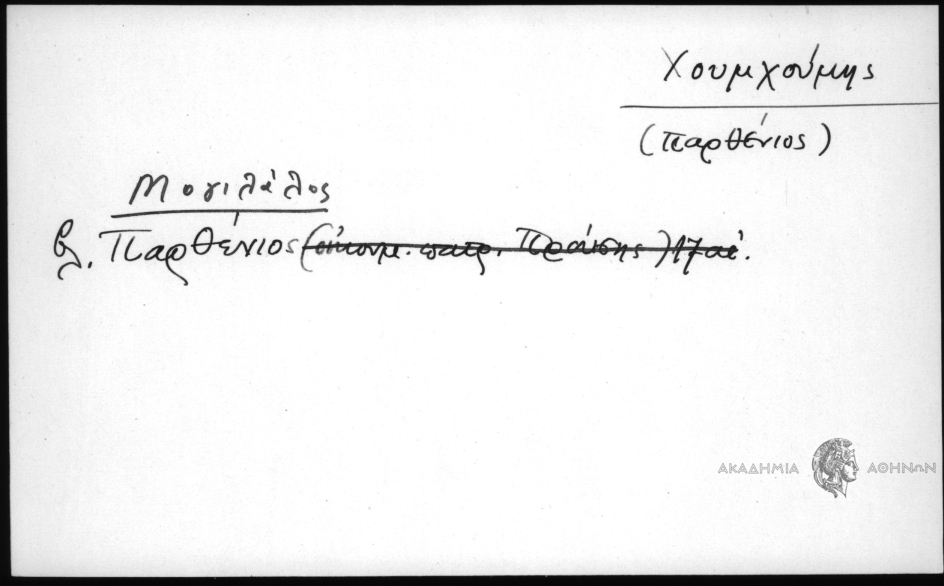 Χουμχούμης
(Παρθένιος)
Μογιλάλος
βλ. Παρθένιος (οἰκουμ. πατρ. Πράσης) 17 αἰ.
ΑΚΑΔΗΜΙΑ ΑΘΗΝΩΝ